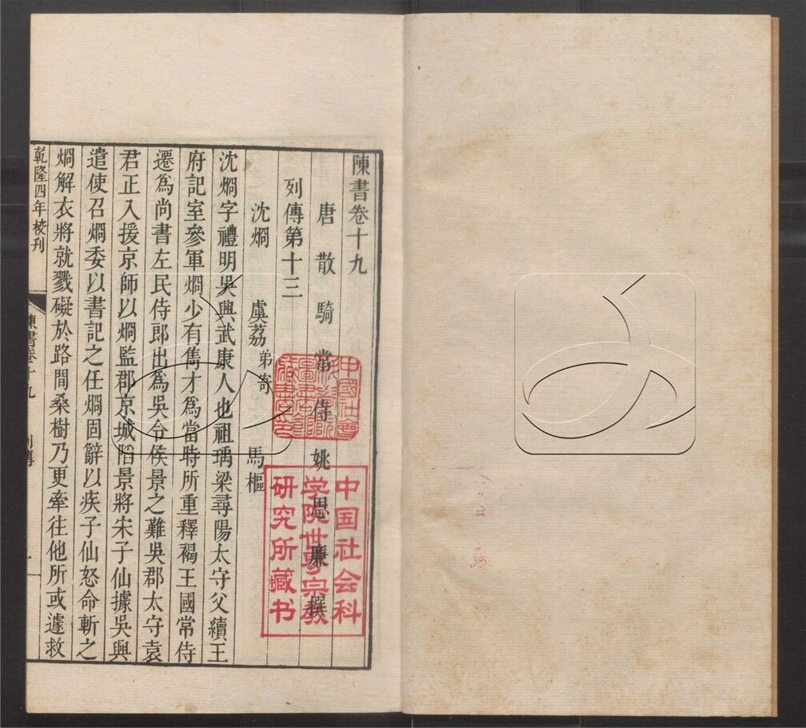 陳書卷十九
唐散騎常侍姚思廉撰
列傳第十三
沈烱 虞荔弟寄 馬樞
沈烱字禮明吳興武康人也祖瑀梁尋陽太守父續王
府記室參軍烱少有雋才為當時所重釋褐王國常侍
遷為尚書左民侍郎出為吳令侯景之難吳郡太守袁
君正入援京師以烱監郡京城陷景將宋子仙據吳興
遣使召烱委以書記之任烱固辭以疾子仙怒命斬之
烱解衣將就戮礙於路間桑樹乃更牽往他所或遽救
乾隆四年校刊
陳書卷十九 列傳 一
中国社会科
学院世界宗教
研究所藏书